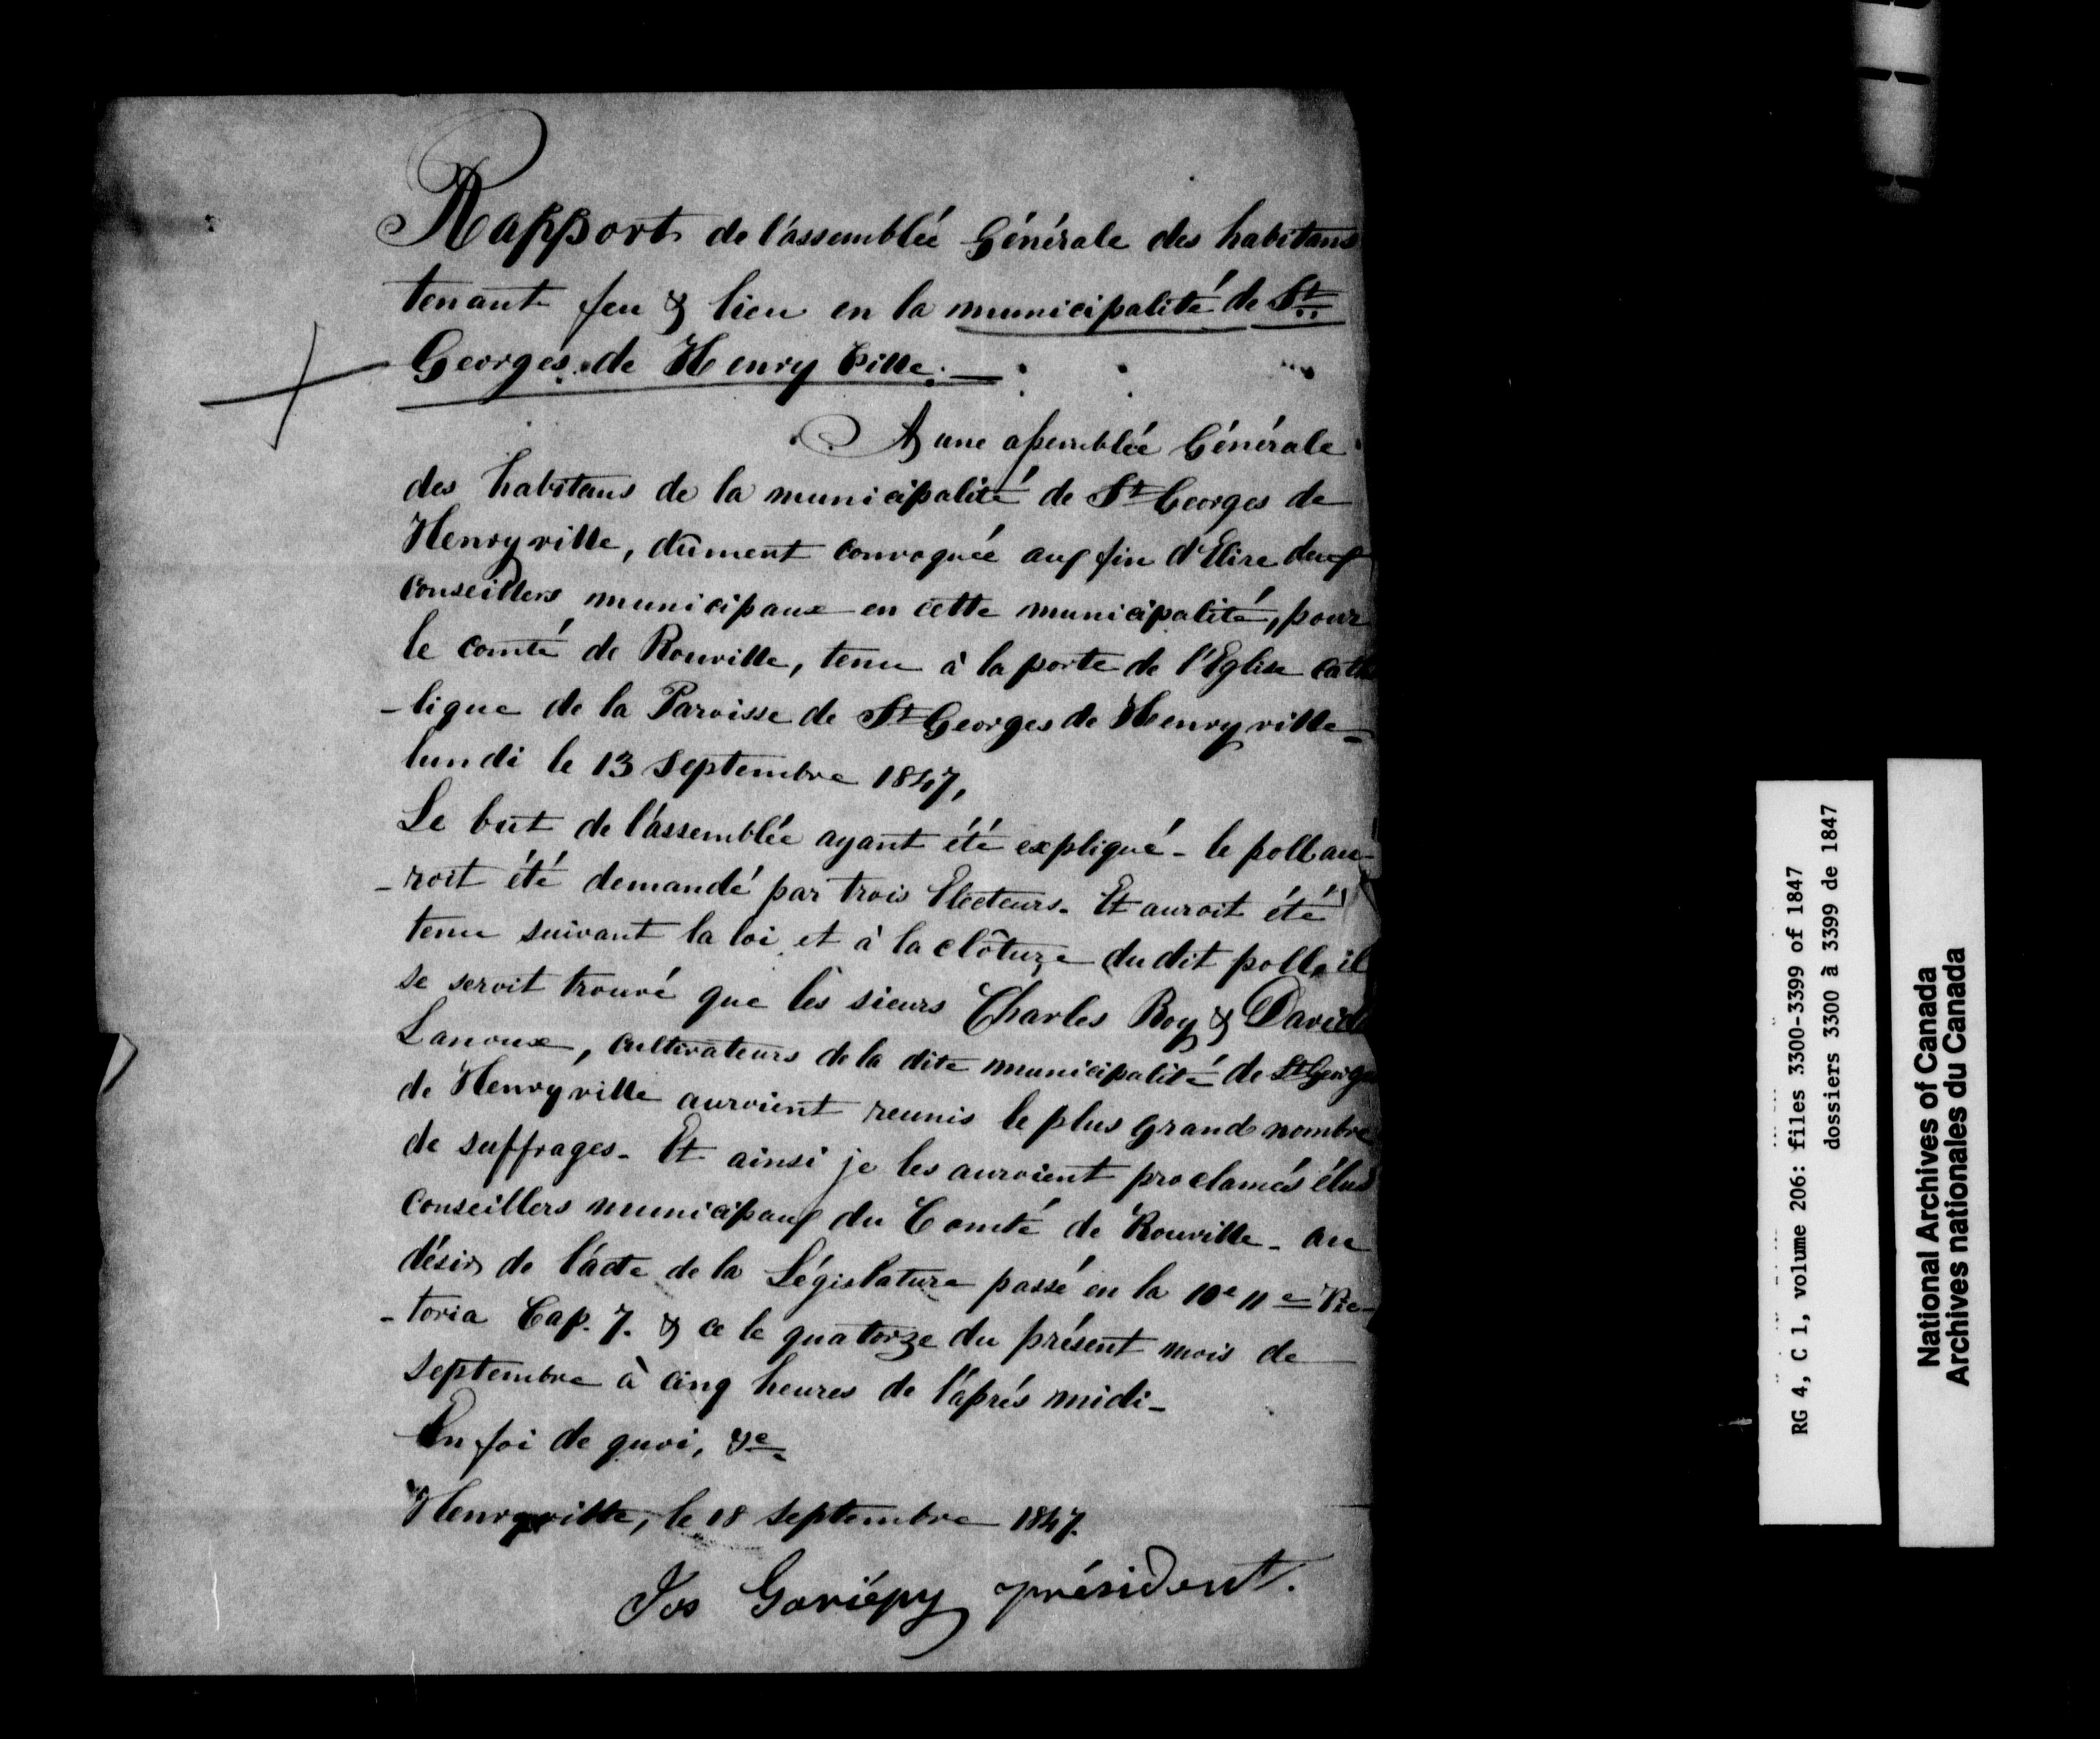 Rapport de l'assemblée Générale des habitans
tenant feu & lieu en la municipalité de St
Georges de Henry Ville. —
A une assemblée Générale
des habitans de la municipalité de St Georges de
Henryville, dûment convoquée aux fin d'Elire deux
conseillers municipaux en cette municipalité, pour
le comté de Rouville, tenu à la porte de l'Eglise catho
-lique de la Paroisse de St Georges de Henryville
lundi le 13 Septembre 1847,
Le but de l'assemblée ayant été expliqué - le poll au-
-roit été demandé par trois Electeurs. Et auroit été
tenu suivant la loi et à la clôture du dit poll, il
se seroit trouvé que les sieurs Charles Roy & David
Lanoue, cultivateurs de la dite municipalité de St Georges
de Henryville auroient reunis le plus grand nombre
de suffrages. Et ainsi je les auroient proclamés élus
conseillers municipaux du Comté de Rouville - au
désir de l'acte de la Législature passé en la 10e 11e Vic-
-toria Cap. 7. & ce le quatorze du présent mois de
septembre à cinq heures de l'après midi -
En foi de quoi, &e
Henryville, le 18 septembre 1847.
Jos Gariépy président.
RG 4, C 1, volume 206: files 3300-3399 of 1847
dossiers 3300 à 3399 de 1847
National Archives of Canada
Archives nationales du Canada